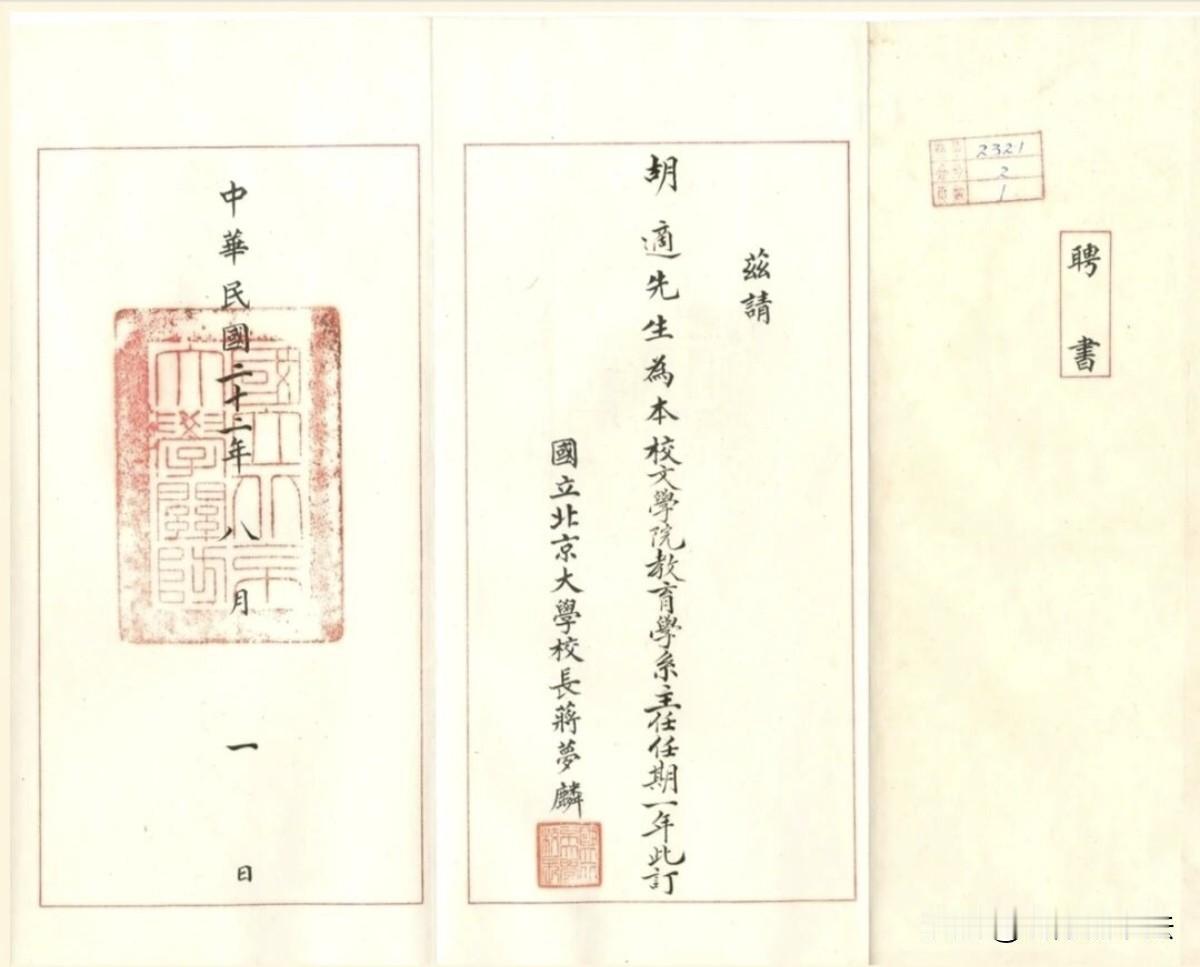 2321
2
1
聘書
茲請
胡適先生為本校文學院教育學系主任任期一年此訂
國立北京大學校長蔣夢麟
中華民國二十二年八月一日
國立北京大學關防